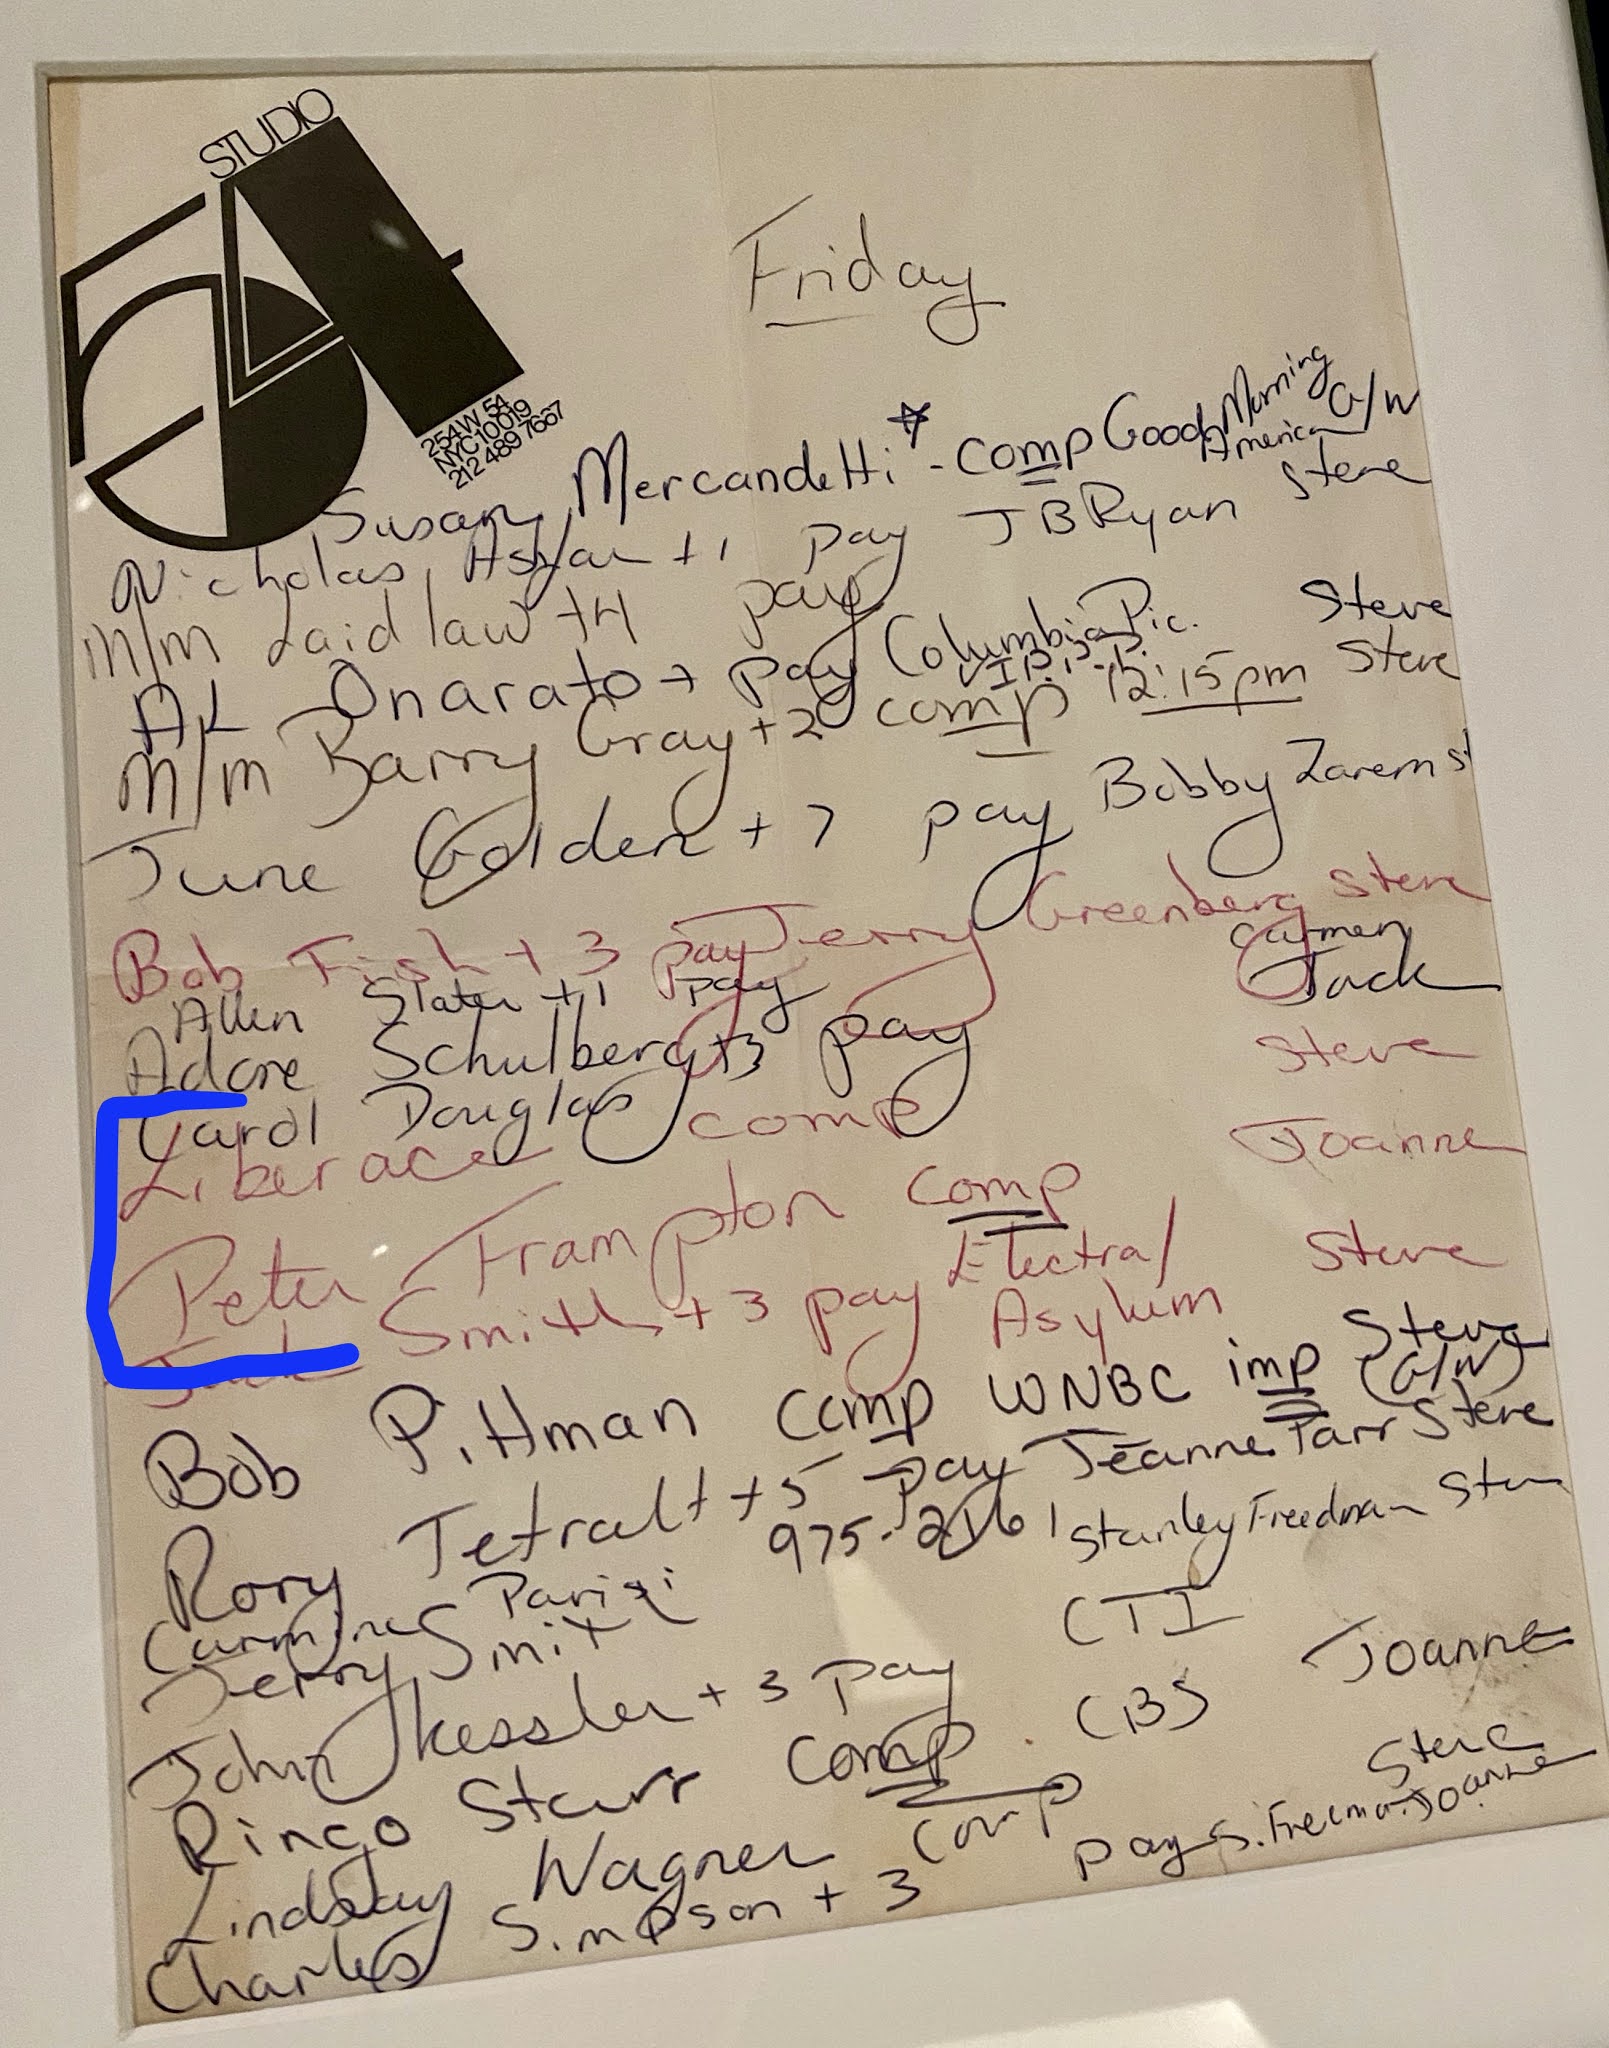 STUDIO
54
254 W 54
NYC 10019
212 489 7667
Friday
Susan Mercandetti * - comp Good Morning America G/W
Nicholas +1 pay JB Ryan Steve
M/M Laidlaw +4 pay
AL Onarato + pay Columbia Pic. Steve
M/M Barry Gray +2 comp V.I.P. 12:15pm Steve
June Golden +7 pay Bobby Zarem St
Bob Fish +3 pay Jerry Greenberg Steve
Allen Slater +1 pay Carmen
Adore Schulberg +3 pay Jack
Carol Douglas
Liberace comp Steve
Peter Frampton comp Joanne
Jack Smith +3 pay Electra/Asylum Steve
Bob Pittman comp WNBC imp Steve (G/W)
Rory Tetralt +5 pay Jeanne Parr Steve
Carmine Parisi 975-2161 Stanley Freedman
Jerry Smith CTI
John Kessler +3 pay CBS Joanne
Ringo Starr comp
Lindsay Wagner comp Steve
Charles Simpson +3 pay S. Joanne